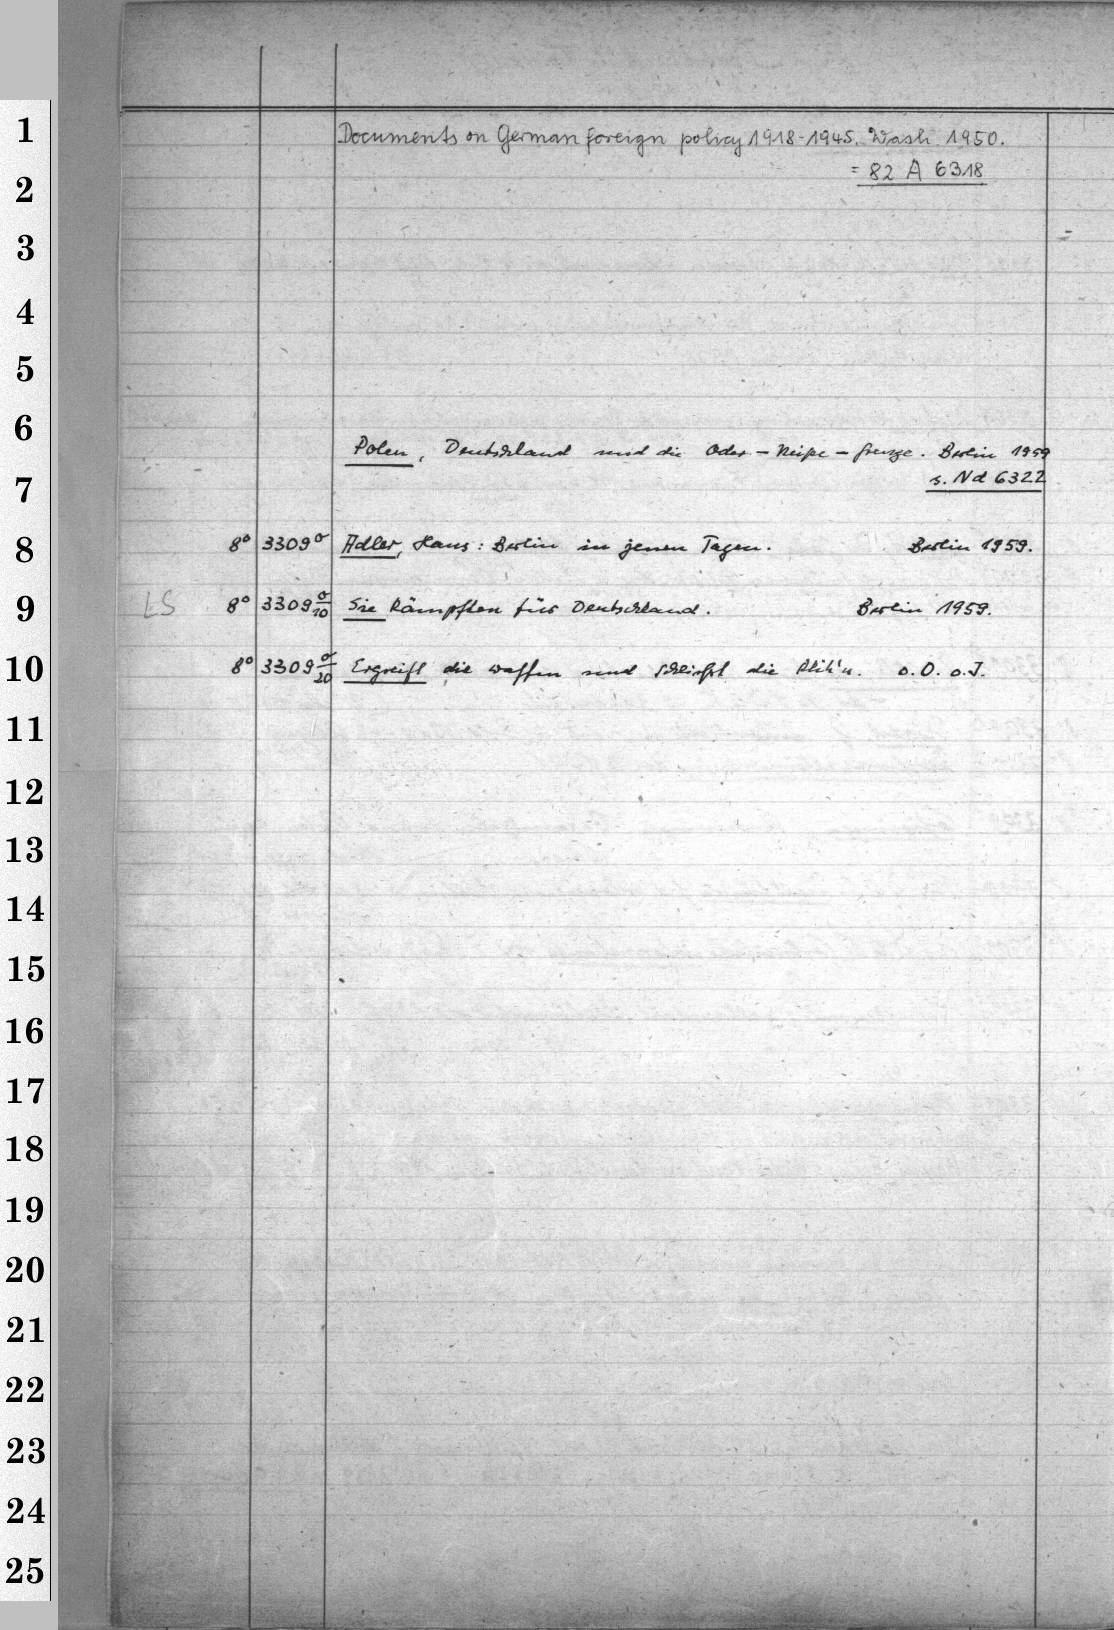 1
Documents on German foreign policy 1918-1945. Wash. 1950.
2
= 82 A 6318
3
4
5
6
Polen, Deutschland und die Oder-Neiße-Grenze. Berlin 1959
7
s. Nd 6322
8
8° 3309 σ Adler, Hans: Berlin in jenen Tagen. Berlin 1959.
9
LS 8° 3309 σ/10 Sie kämpften für Deutschland. Berlin 1959.
10
8° 3309 σ/20 Ergreift die Waffen und schließt die Reih'n. o. O. o. J.
11
12
13
14
15
16
17
18
19
20
21
22
23
24
25